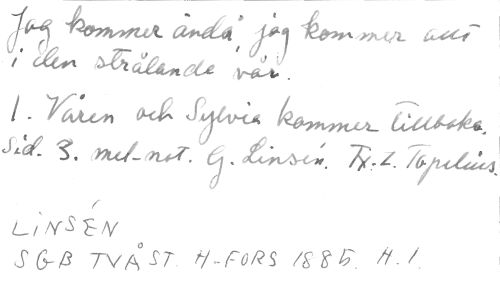 Jag kommer ändå jag kommer ändå
i den strålande vår.
1. Våren och Sylvia kommer tillbaka.
Sid. 3. mel-not. G. Linsén. Tx. Z. Topelius.
LINSÉN
SGB TVÅST. H-FORS 1885. H. 1.